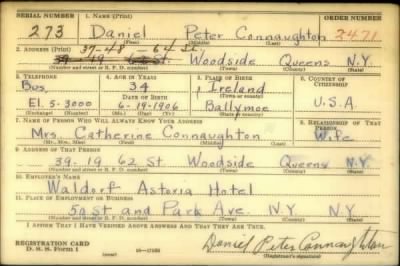 SERIAL NUMBER 1. NAME (Print) ORDER NUMBER
273 Daniel Peter Connaughton 2471
(First) (Middle) (Last)
2. ADDRESS (Print) 37-48-64 St.
39-19 62 St. Woodside Queens N.Y.
(Number and street or R. F. D. number) (Town) (County) (State)
3. TELEPHONE 4. AGE IN YEARS 5. PLACE OF BIRTH 6. COUNTRY OF CITIZENSHIP
Bus. 34 Ireland
DATE OF BIRTH (Town or county)
El. 5-3000 6-19-1906 Ballymoe U.S.A.
(Exchange) (Number) (Mo.) (Day) (Yr.) (State or country)
7. NAME OF PERSON WHO WILL ALWAYS KNOW YOUR ADDRESS 8. RELATIONSHIP OF THAT PERSON
Mrs. Catherine Connaughton Wife
(Mr., Mrs., Miss) (First) (Middle) (Last)
9. ADDRESS OF THAT PERSON
39-19 62 St Woodside Queens N.Y.
(Number and street or R. F. D. number) (Town) (County) (State)
10. EMPLOYER'S NAME
Waldorf Astoria Hotel
11. PLACE OF EMPLOYMENT OR BUSINESS
50 St and Park Ave. N.Y. N.Y.
(Number and street or R. F. D. number) (Town) (County) (State)
I AFFIRM THAT I HAVE VERIFIED ABOVE ANSWERS AND THAT THEY ARE TRUE.
REGISTRATION CARD
D. S. S. Form 1 (over) 16-17105 Daniel Peter Connaughton